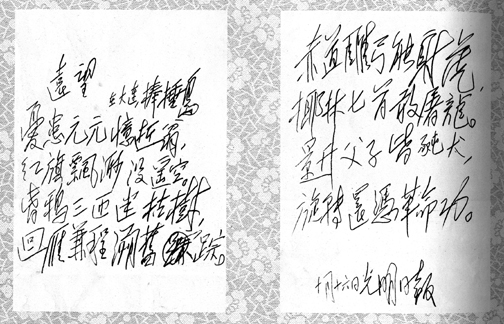 遠望
在大連棒棰島
憂患元元憶逝翁,
红旗飄渺没遥空。
昏鴉三匝迷枯樹,
回雁兼程溯舊踪。
赤道雕弓能射虎,
椰林匕首敢屠龍。
景升父子皆豚犬,
旋轉還憑革命功。
十月十六日光明日報